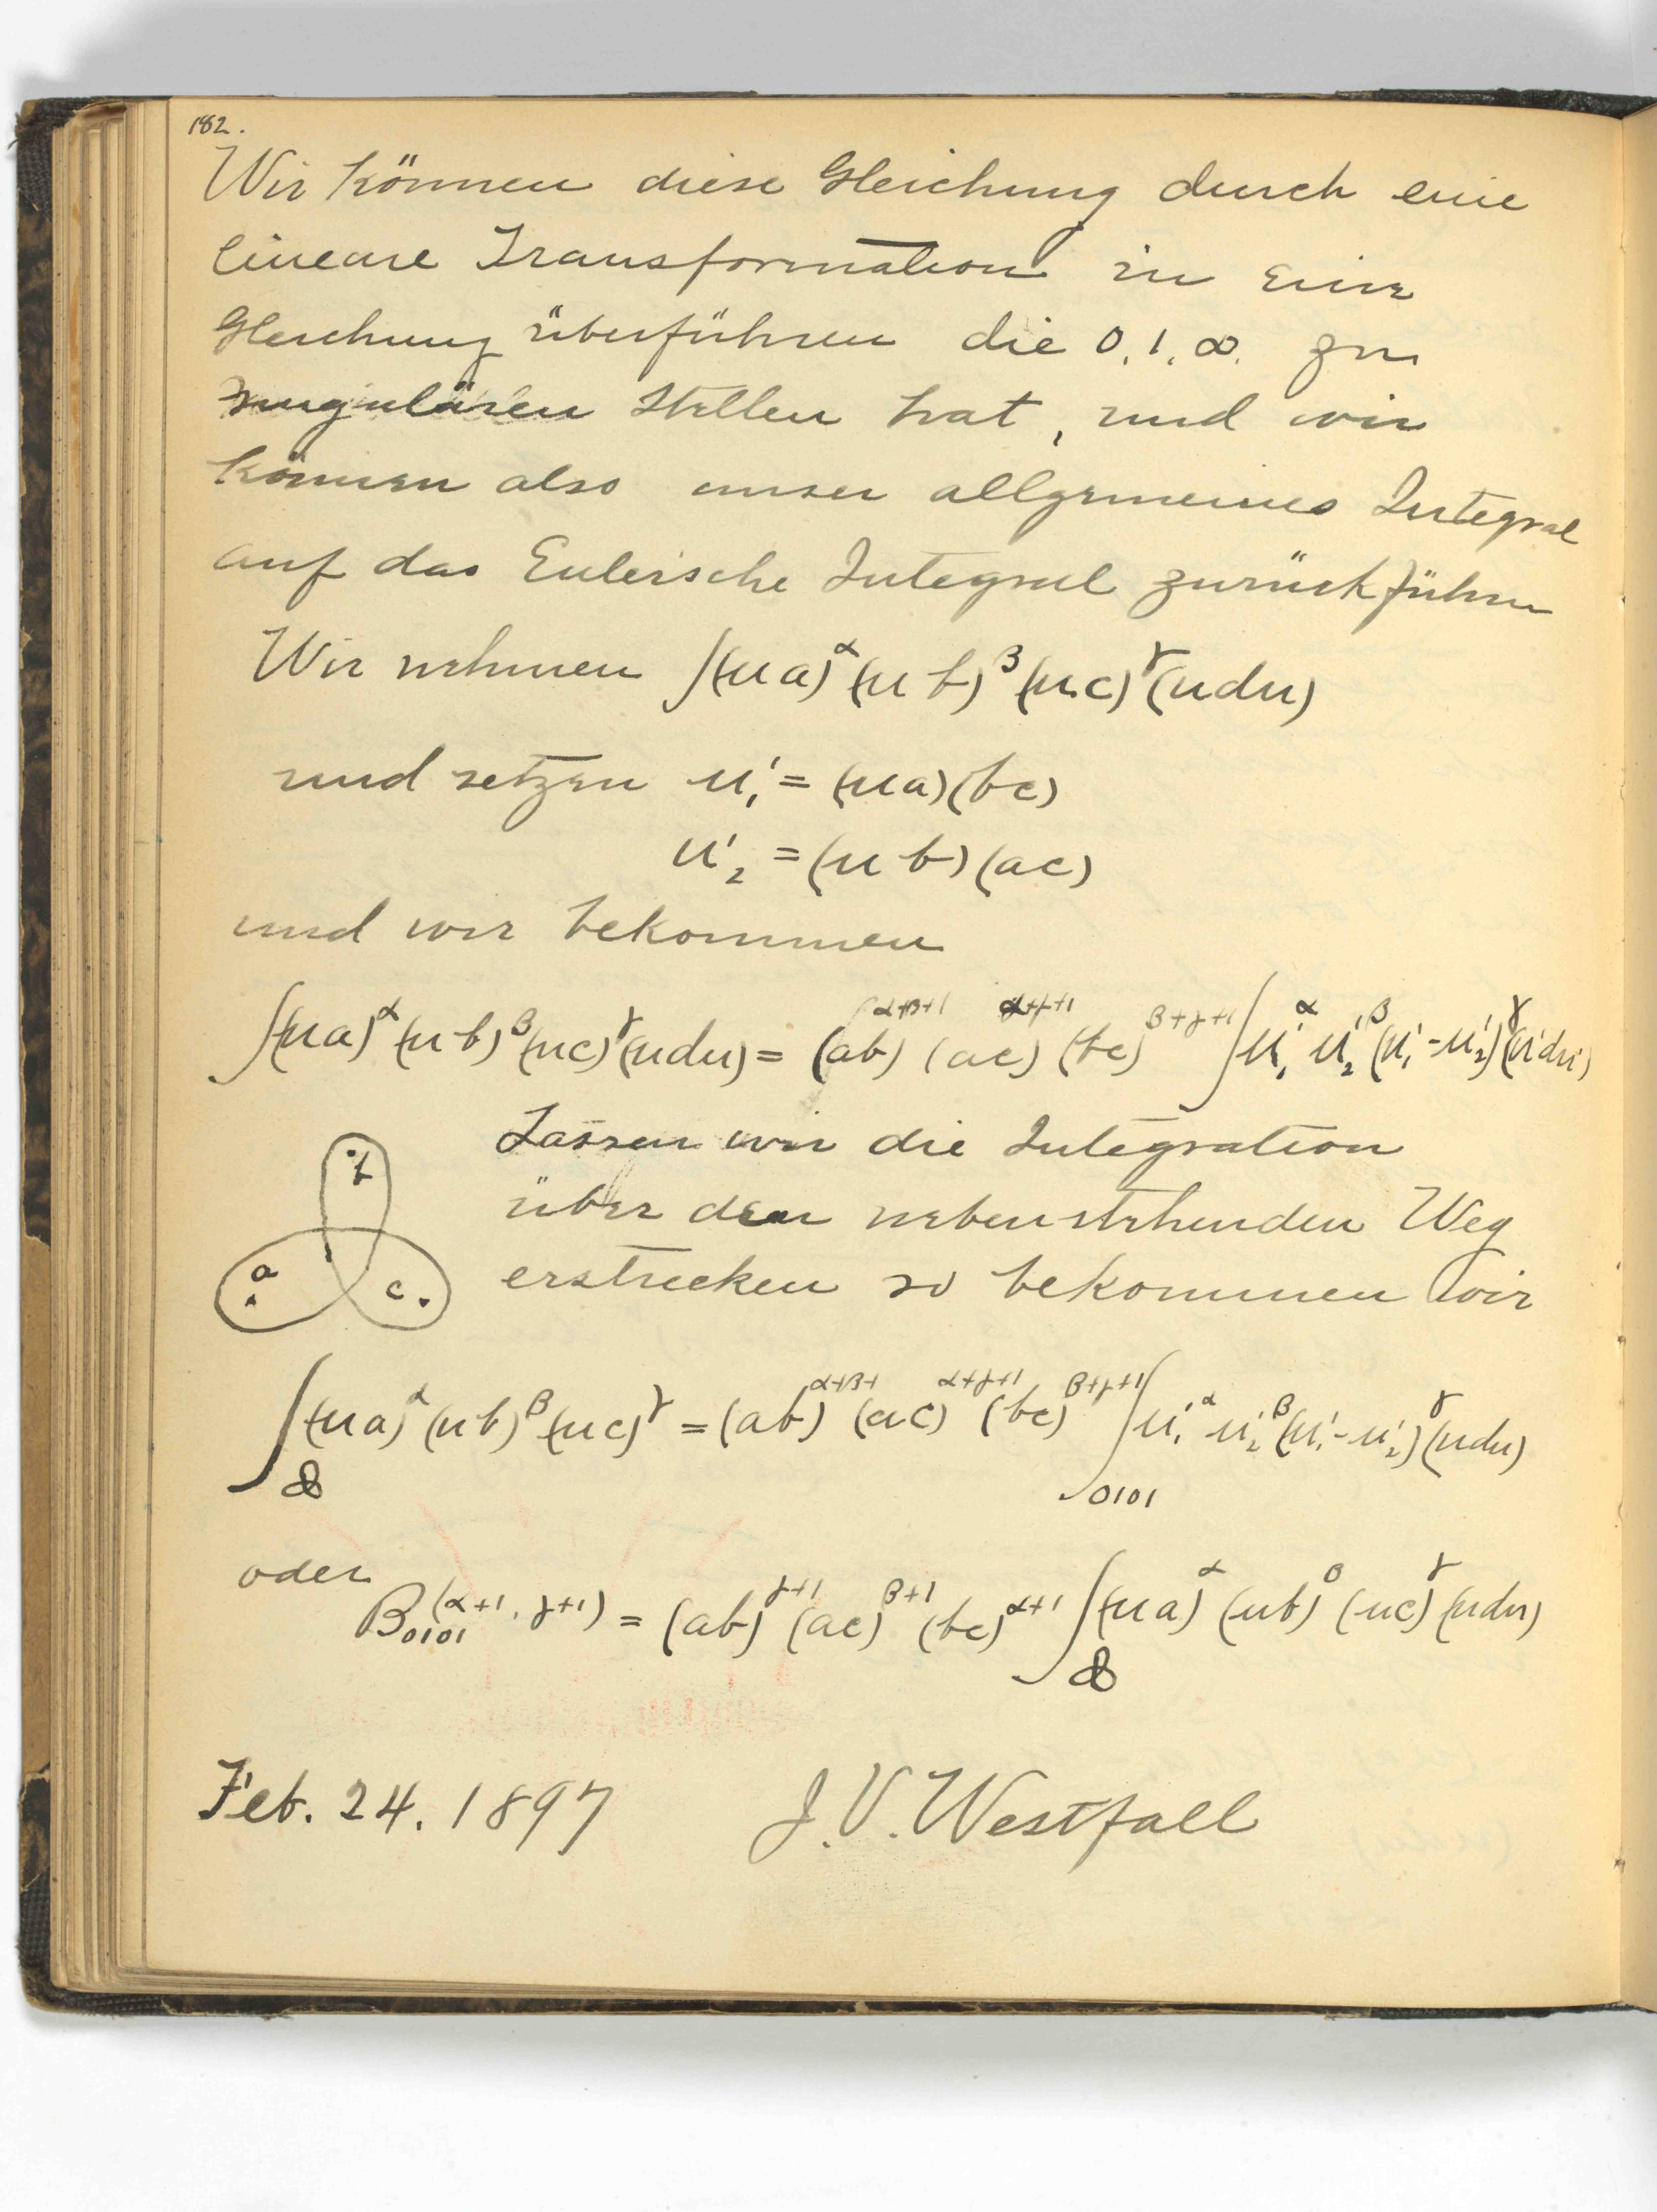 182.
Wir können diese Gleichung durch eine
lineare Transformation in eine
Gleichung überführen die 0, 1, ∞. zu
singulären Stellen hat, und wir
können also unser allgemeines Integral
auf das Eulersche Integral zurückführen
Wir nehmen ∫(ua)^α (ub)^β (uc)^γ (udu)
und setzen u'₁ = (ua)(bc)
u'₂ = (ub)(ac)
und wir bekommen
∫(ua)^α (ub)^β (uc)^γ (udu) = (ab)^{α+β+1} (ac)^{α+γ+1} (bc)^{β+γ+1} ∫u'₁^α u'₂^β (u'₁-u'₂)^γ (u'du')
Lassen wir die Integration
über den nebenstehenden Weg
erstrecken so bekommen wir
b
a
c
∫(ua)^α (ub)^β (uc)^γ = (ab)^{α+β+} (ac)^{α+γ+1} (bc)^{β+γ+1} ∫_{0101} u'₁^α u'₂^β (u'₁-u'₂)^γ (udu)
oder
B_{0101}^{(α+1, γ+1)} = (ab)^{γ+1} (ac)^{β+1} (bc)^{α+1} ∫(ua)^α (ub)^β (uc)^γ (udu)
Feb. 24. 1897 J. V. Westfall